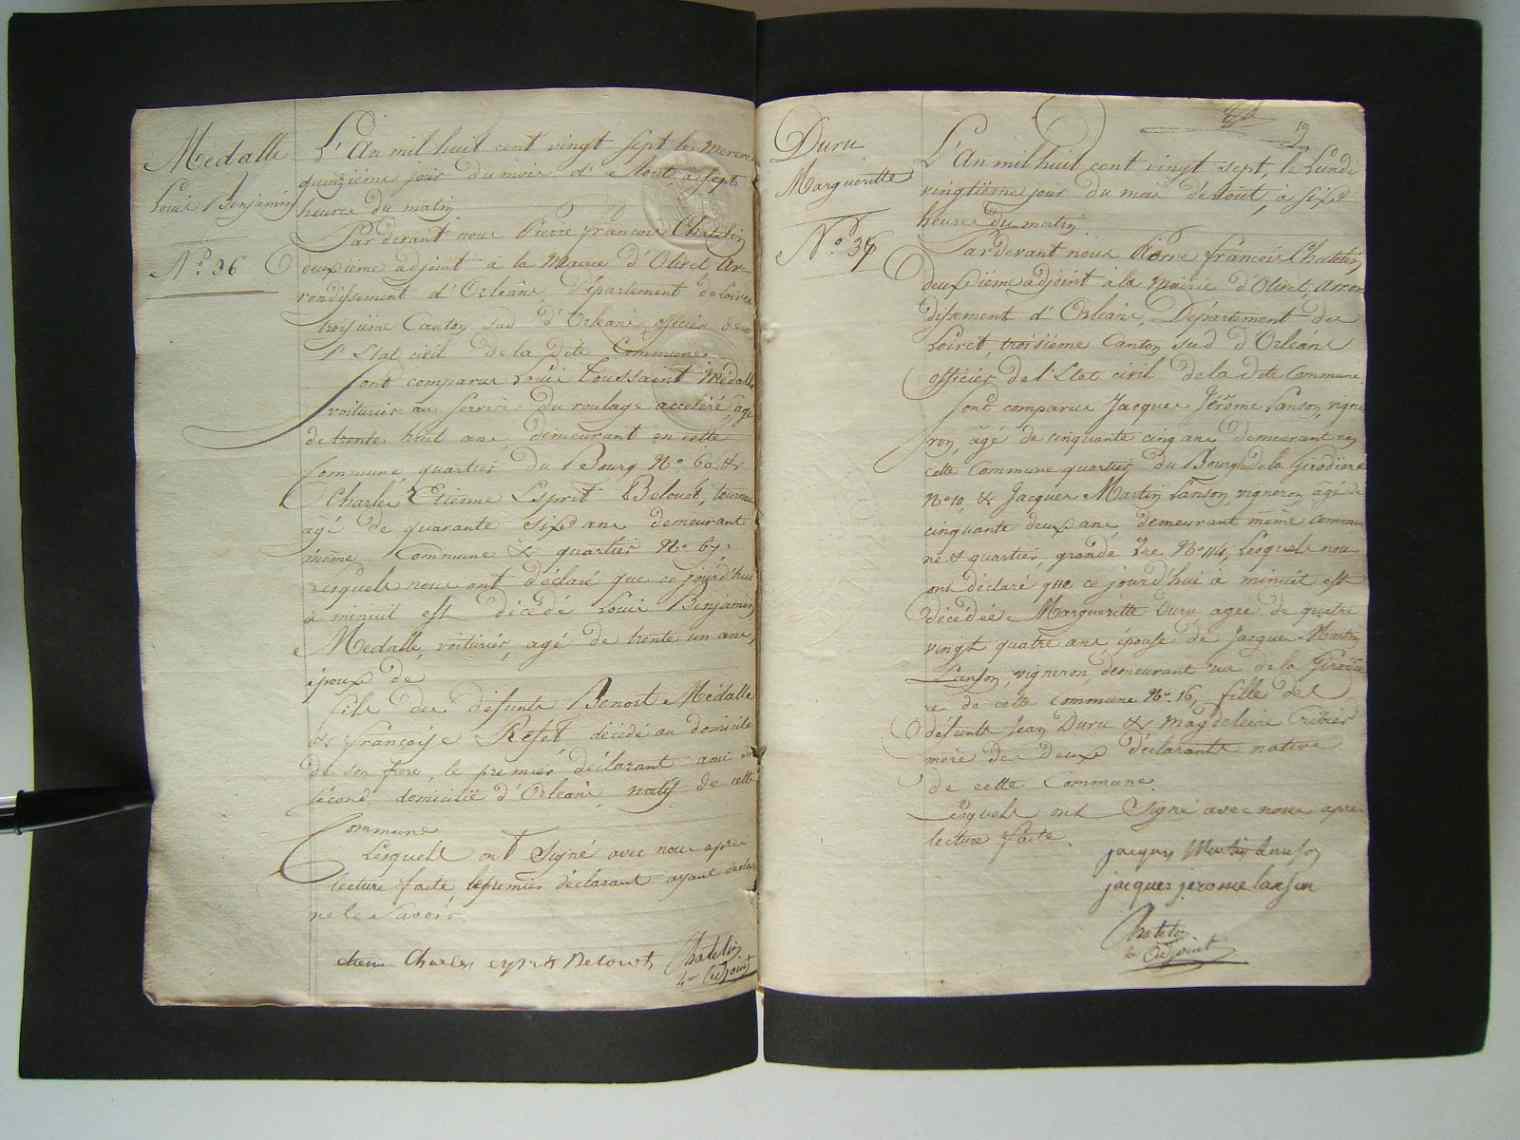 Medalle
Louis Benjamin
N.º 36
L'An mil huit cent vingt sept le Mercre
quinzième jour du mois d'Aout a sept
heures du matin
Par devant nous Pierre françois Chatelin
deuxième adjoint a la Mairie d'Olivet, Ar
rondissement d'Orléans, Département du Loiret
troisième Canton sud d'Orléans, officier de
l'Etat civil de la dite Commune
Sont comparus Louis Toussaint Médalle
voiturier au service du roulage acceléré, agé
de trente huit ans, demeurant en cette
Commune quartier du Bourg Nº 60 &
Charles Etienne Esprit Belouet, tourneur
agé de quarante six ans demeurant
même Commune & quartier Nº 67,
Lesquels nous ont déclaré que ce jourd'hui
à minuit est décédé Louis Benjamin
Medalle, voiturier, agé de trente un ans,
époux de
fils de defunts Benoist Médalle
& françoise Refet décédé au domicile
de son frere, le premier déclarant ami du
sécond, domicilié d'Orléans, natif de cette
Commune
Lesquels ont Signé avec nous après
lecture faite le premier déclarant ayant déclaré
ne le Savoir.
Charles esprit Belouet
Chatelin
adjoint
19
Duru
Marguéritte
N.º 37
L'An mil huit cent vingt sept, le Lundi
vingtième jour du mois d'Aout, à six
heures du matin
Par devant nous Pierre françois Chatelin
deuxième adjoint à la Mairie d'Olivet, Arron
dissement d'Orléans, Département du
Loiret, troisième Canton sud d'Orléans
officier de l'Etat civil de la dite Commune
Sont comparus Jacques Jérôme Lanson, vigne
ron, âgé de cinquante cinq ans demeurant en
cette Commune quartier du Bourg de la Girodiere
Nº 10, & Jacques Martin Lanson, vigneron, âgé de
cinquante deux ans demeurant même commu
ne & quartier, grande rue Nº 114, Lesquels nous
ont déclaré que ce jourd'hui à minuit est
décédée Marguéritte Duru agée de quatre
vingt quatre ans épouse de Jacques Martin
Lanson, vigneron, demeurant rue de la Girodie
re de cette Commune Nº 16, fille de
défunts Jean Duru & Magdeleine Cribier
mère de Deux déclarants native
de cette Commune.
Lesquels ont Signé avec nous après
lecture faite.
jacques Martin lanson
jacques jerome lanson
Chatelin
adjoint